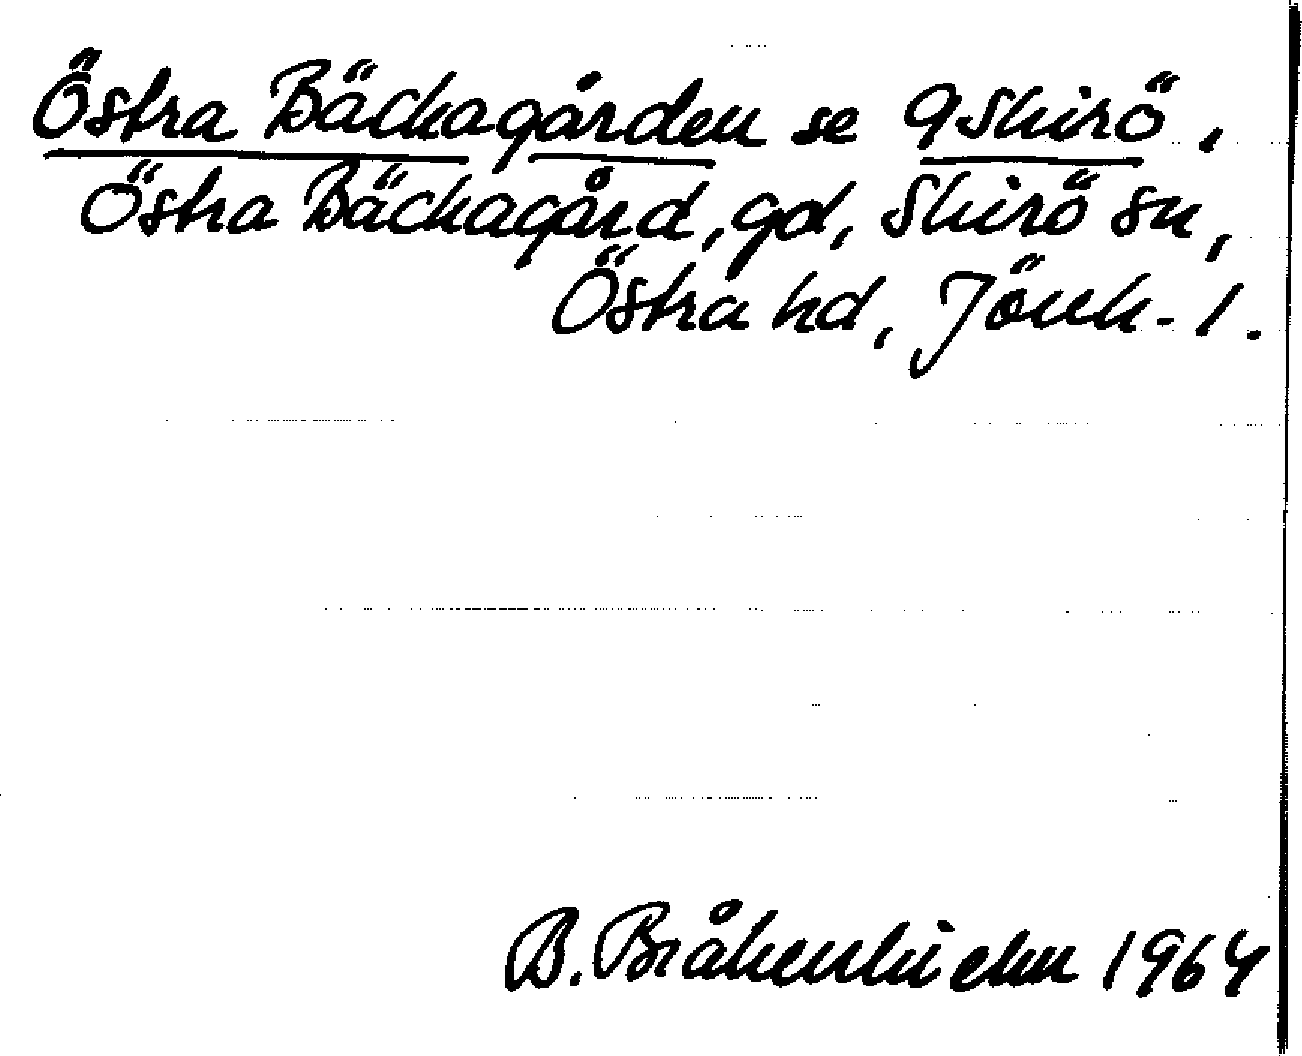 Östra Bäckagården se 9 Skirö,
Östra Bäckagård, gd, Skirö sn,
Östra hd, Jönk. l.
B. Bråkenhielm 1964